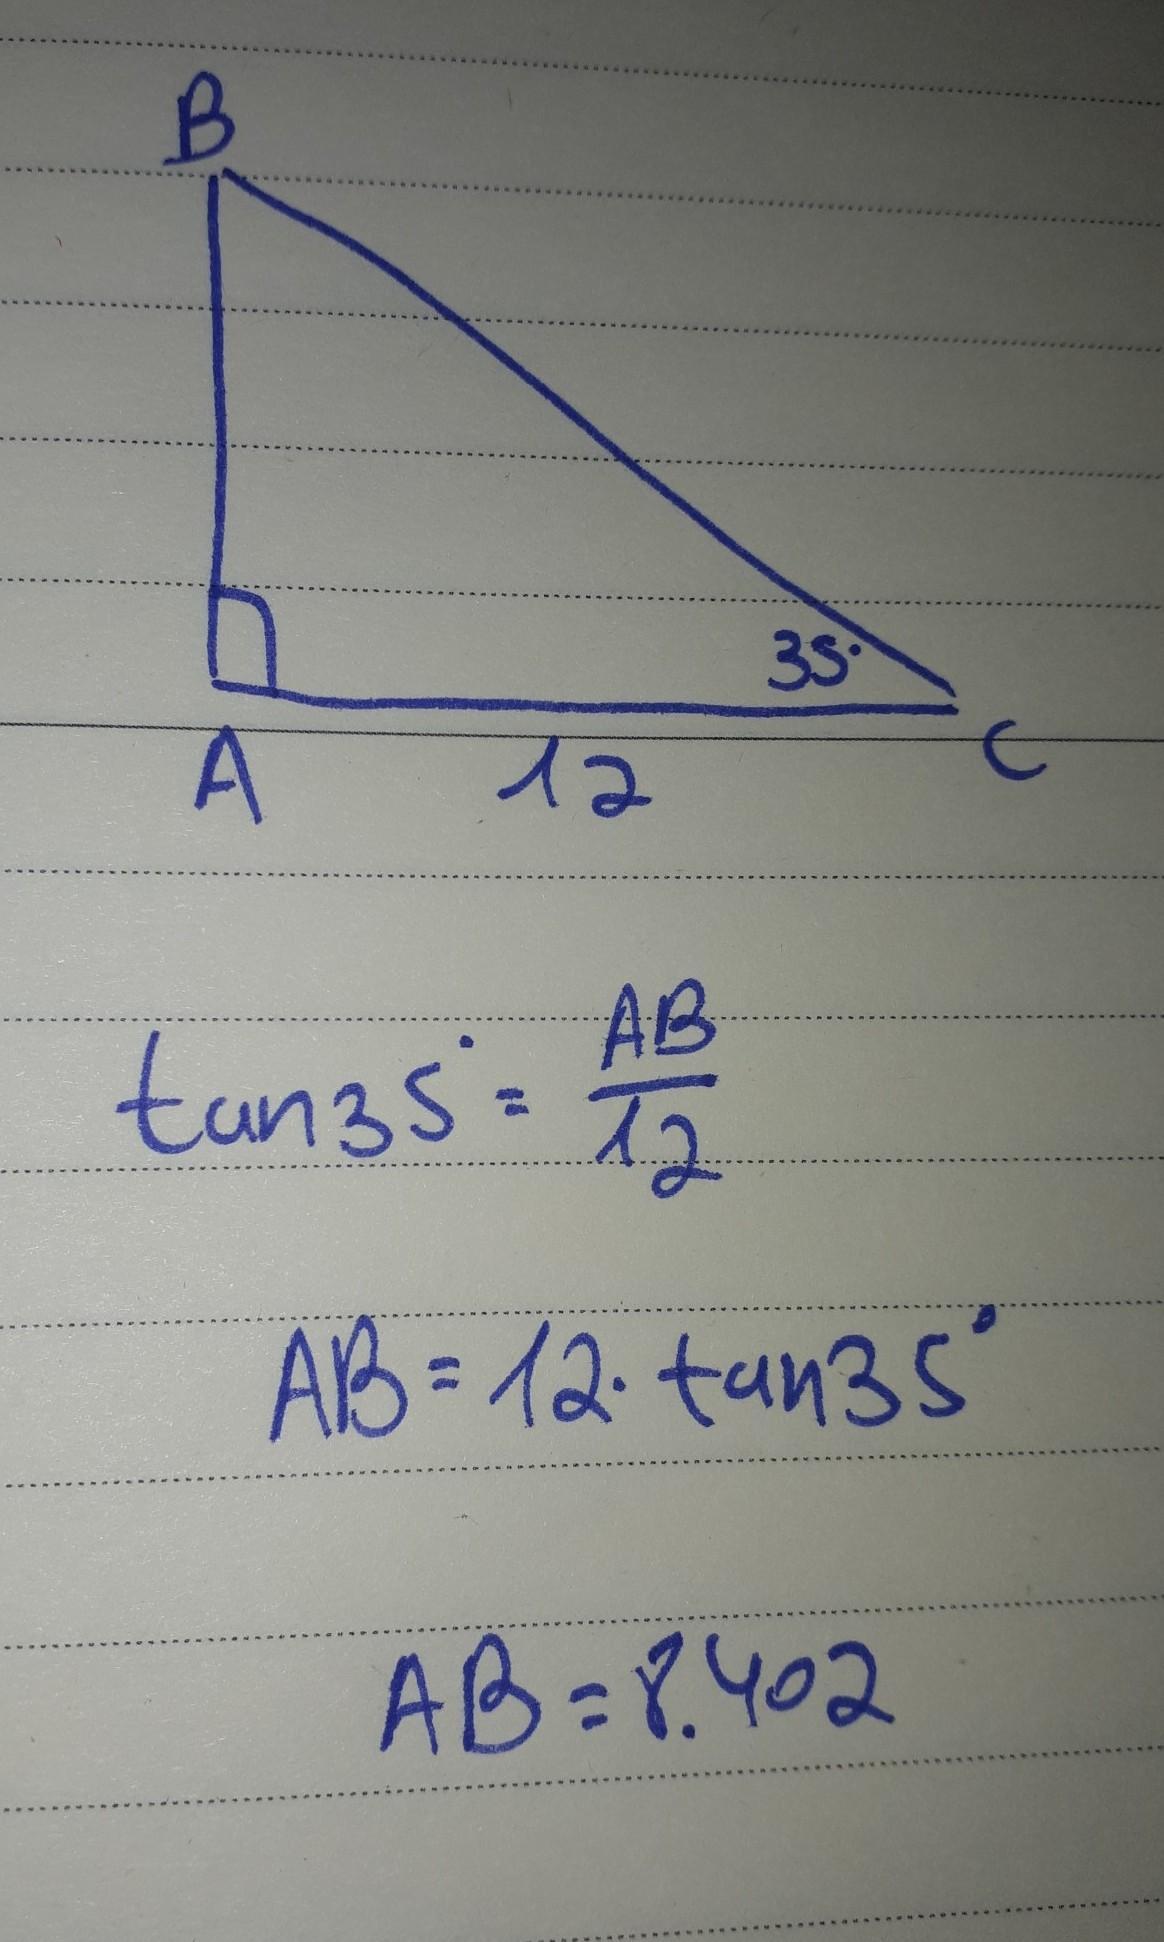 B
35°
A 12 C
tan35° = AB/12
AB = 12 · tan35°
AB = 8.402